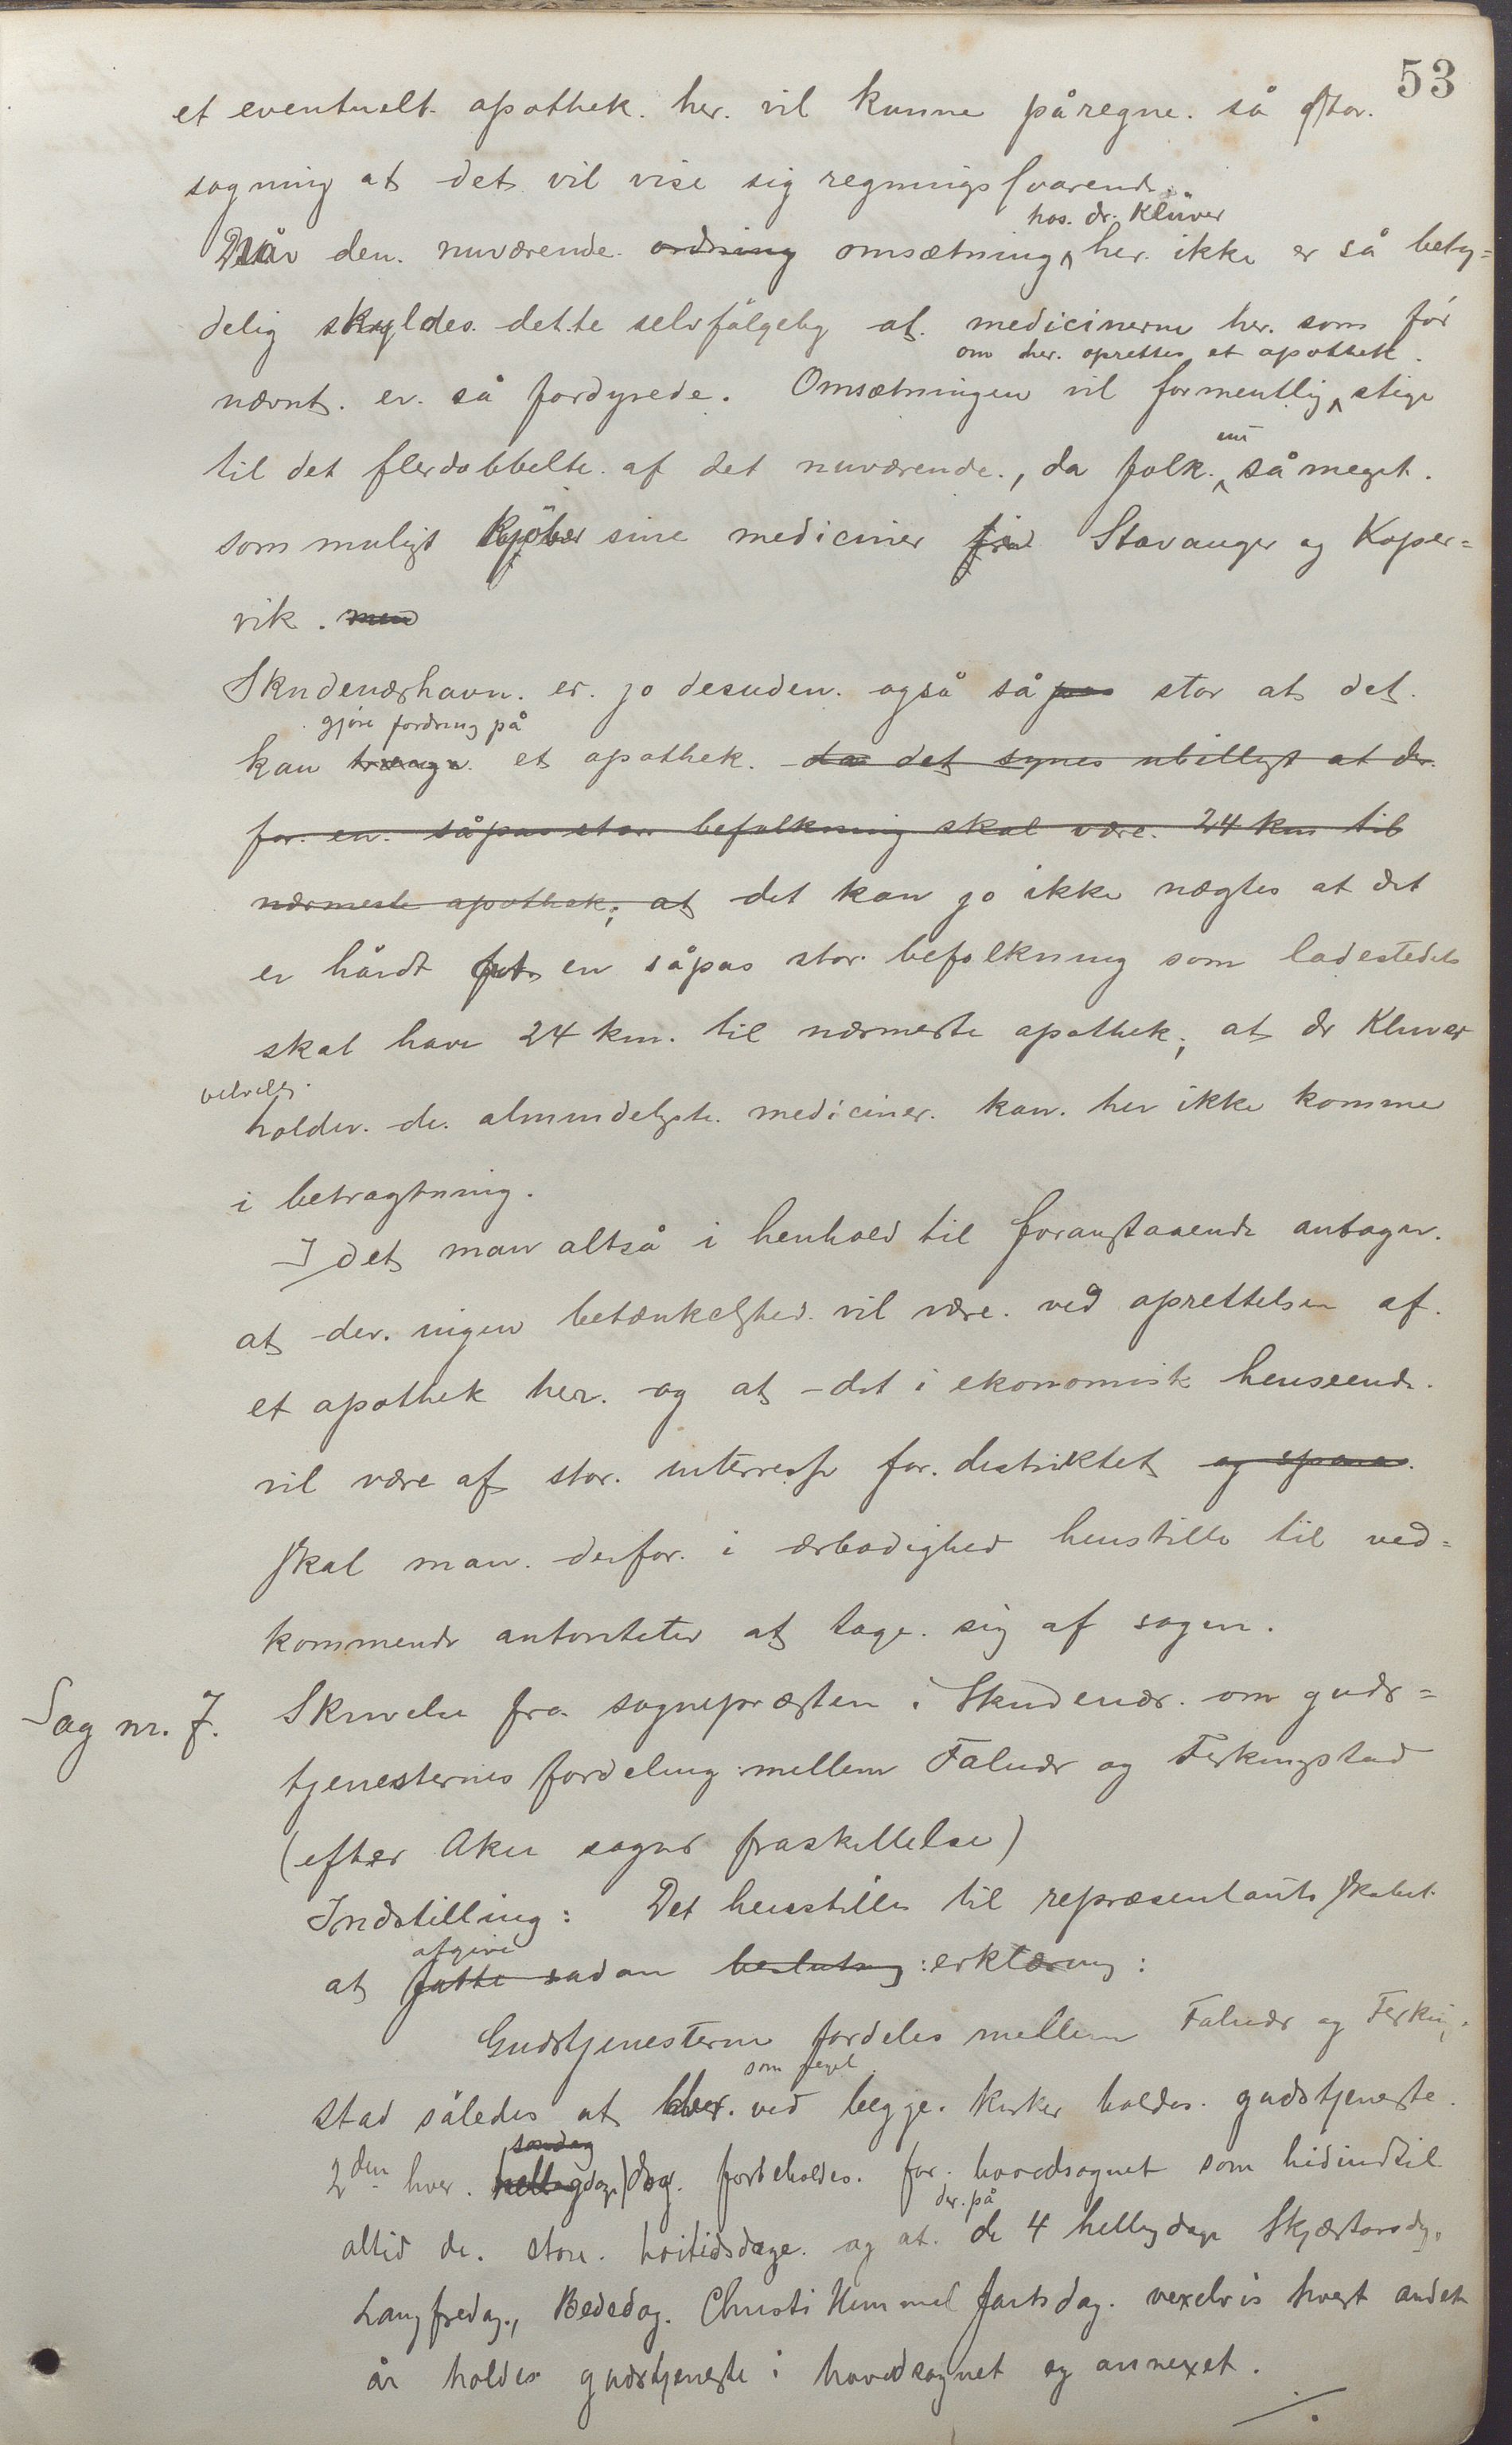 53
et eventuelt apothek her vil kunne påregne så stor
søgning at det vil vise sig regningssvarende.
hos dr. Klüver
Når den nuværende ordning omsætning her ikke er så bety=
delig skyldes dette selvfølgelig at medicinerne her som før
om her oprettes et apothek.
nævnt er så fordyrede. Omsætningen vil formentlig stige
til det flerdobbelte af det nuværende, da folk nu så meget
som muligt kjöber sine mediciner fra Stavanger og Koper=
vik. men
Skudenæshavn er jo desuden også såpas stor at det
gjøre fordring på
kan trænge et apothek. da det synes ubilligt at der
for en såpas stor befolkning skal være 24 km til
nærmeste apothek; at det kan jo ikke nægtes at det
er hårdt at en såpas stor befolkning som ladestedets
skal have 24 km. til nærmeste apothek; at dr Kluver
velvilligt
holder de almindeligste mediciner kan her ikke komme
i betragtning.
Idet man altså i henhold til foranstaaende antager
at der ingen betænkelighed vil være ved oprettelsen af
et apothek her og at det i ekonomisk henseende
vil være af stor interresse for distriktet og
skal man derfor i ærbødighed henstille til ved=
kommende autoriteter at tage sig af sagen.
Sag nr. 7. Skrivelse fra sognepræsten i Skudenæs om guds=
tjenesternes fordeling mellem Falnæs og Ferkingstad
(efter Akre sogns fraskillelse)
Indstilling: Det henstilles til repræsentantskabet
afgive
at fatte sadan beslutning: erklæring:
Gudstjenesterne fordeles mellem Falnæs og Ferking
som regel
stad således at der ved begge kirker holdes gudstjeneste
søndag
2den hver helligdag dog forbeholdes for hovedsognet som hidindtil
der på
altid de store høitidsdage og at de 4 helligdage Skjærtorsdg,
Langfredag, Bededag, Christi Himmelfartsdag vexelvis hvert andet
år holdes gudstjeneste i hovedsognet og annexet.